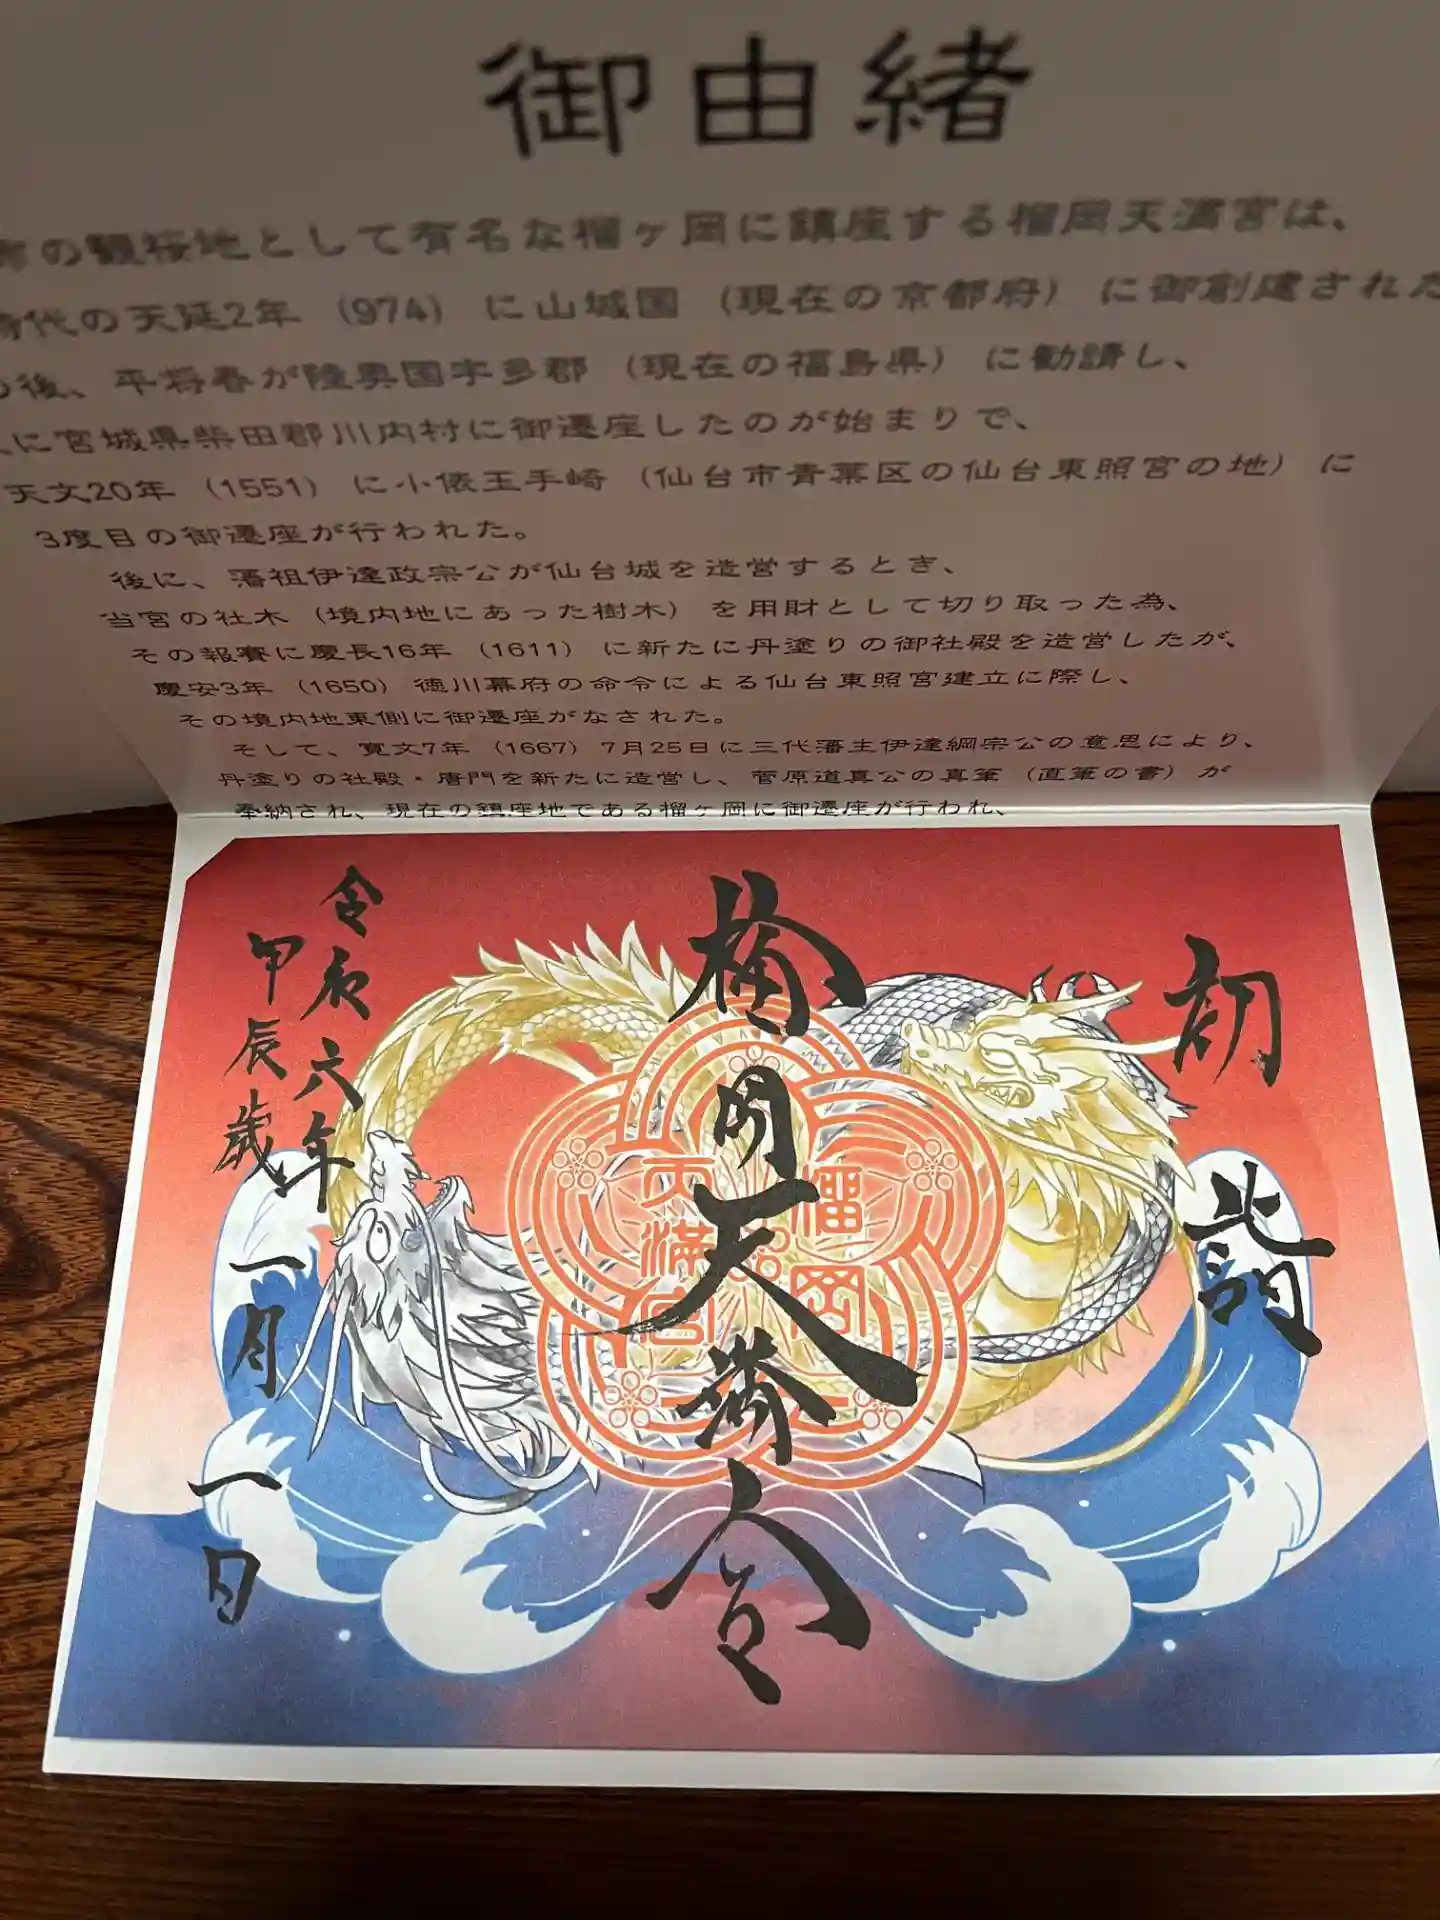 御由緒
の観桜地として有名な榴ヶ岡に鎮座する榴岡天満宮は、
時代の天延2年（974）に山城国（現在の京都府）に御創建された
の後、平将春が陸奥国宇多郡（現在の福島県）に勧請し、
に宮城県柴田郡川内村に御遷座したのが始まりで、
天文20年（1551）に小俵玉手崎（仙台市青葉区の仙台東照宮の地）に
3度目の御遷座が行われた。
後に、藩祖伊達政宗公が仙台城を造営するとき、
当宮の社木（境内地にあった樹木）を用財として切り取った為、
その報賽に慶長16年（1611）に新たに丹塗りの御社殿を造営したが、
慶安3年（1650）徳川幕府の命令による仙台東照宮建立に際し、
その境内地東側に御遷座がなされた。
そして、寛文7年（1667）7月25日に三代藩主伊達綱宗公の意思により、
丹塗りの社殿・唐門を新たに造営し、菅原道真公の真筆（直筆の書）が
奉納され、現在の鎮座地である榴ヶ岡に御遷座が行われ、
初詣
榴岡天満宮
榴岡
天満宮
令和六年
甲辰歳
一月一日